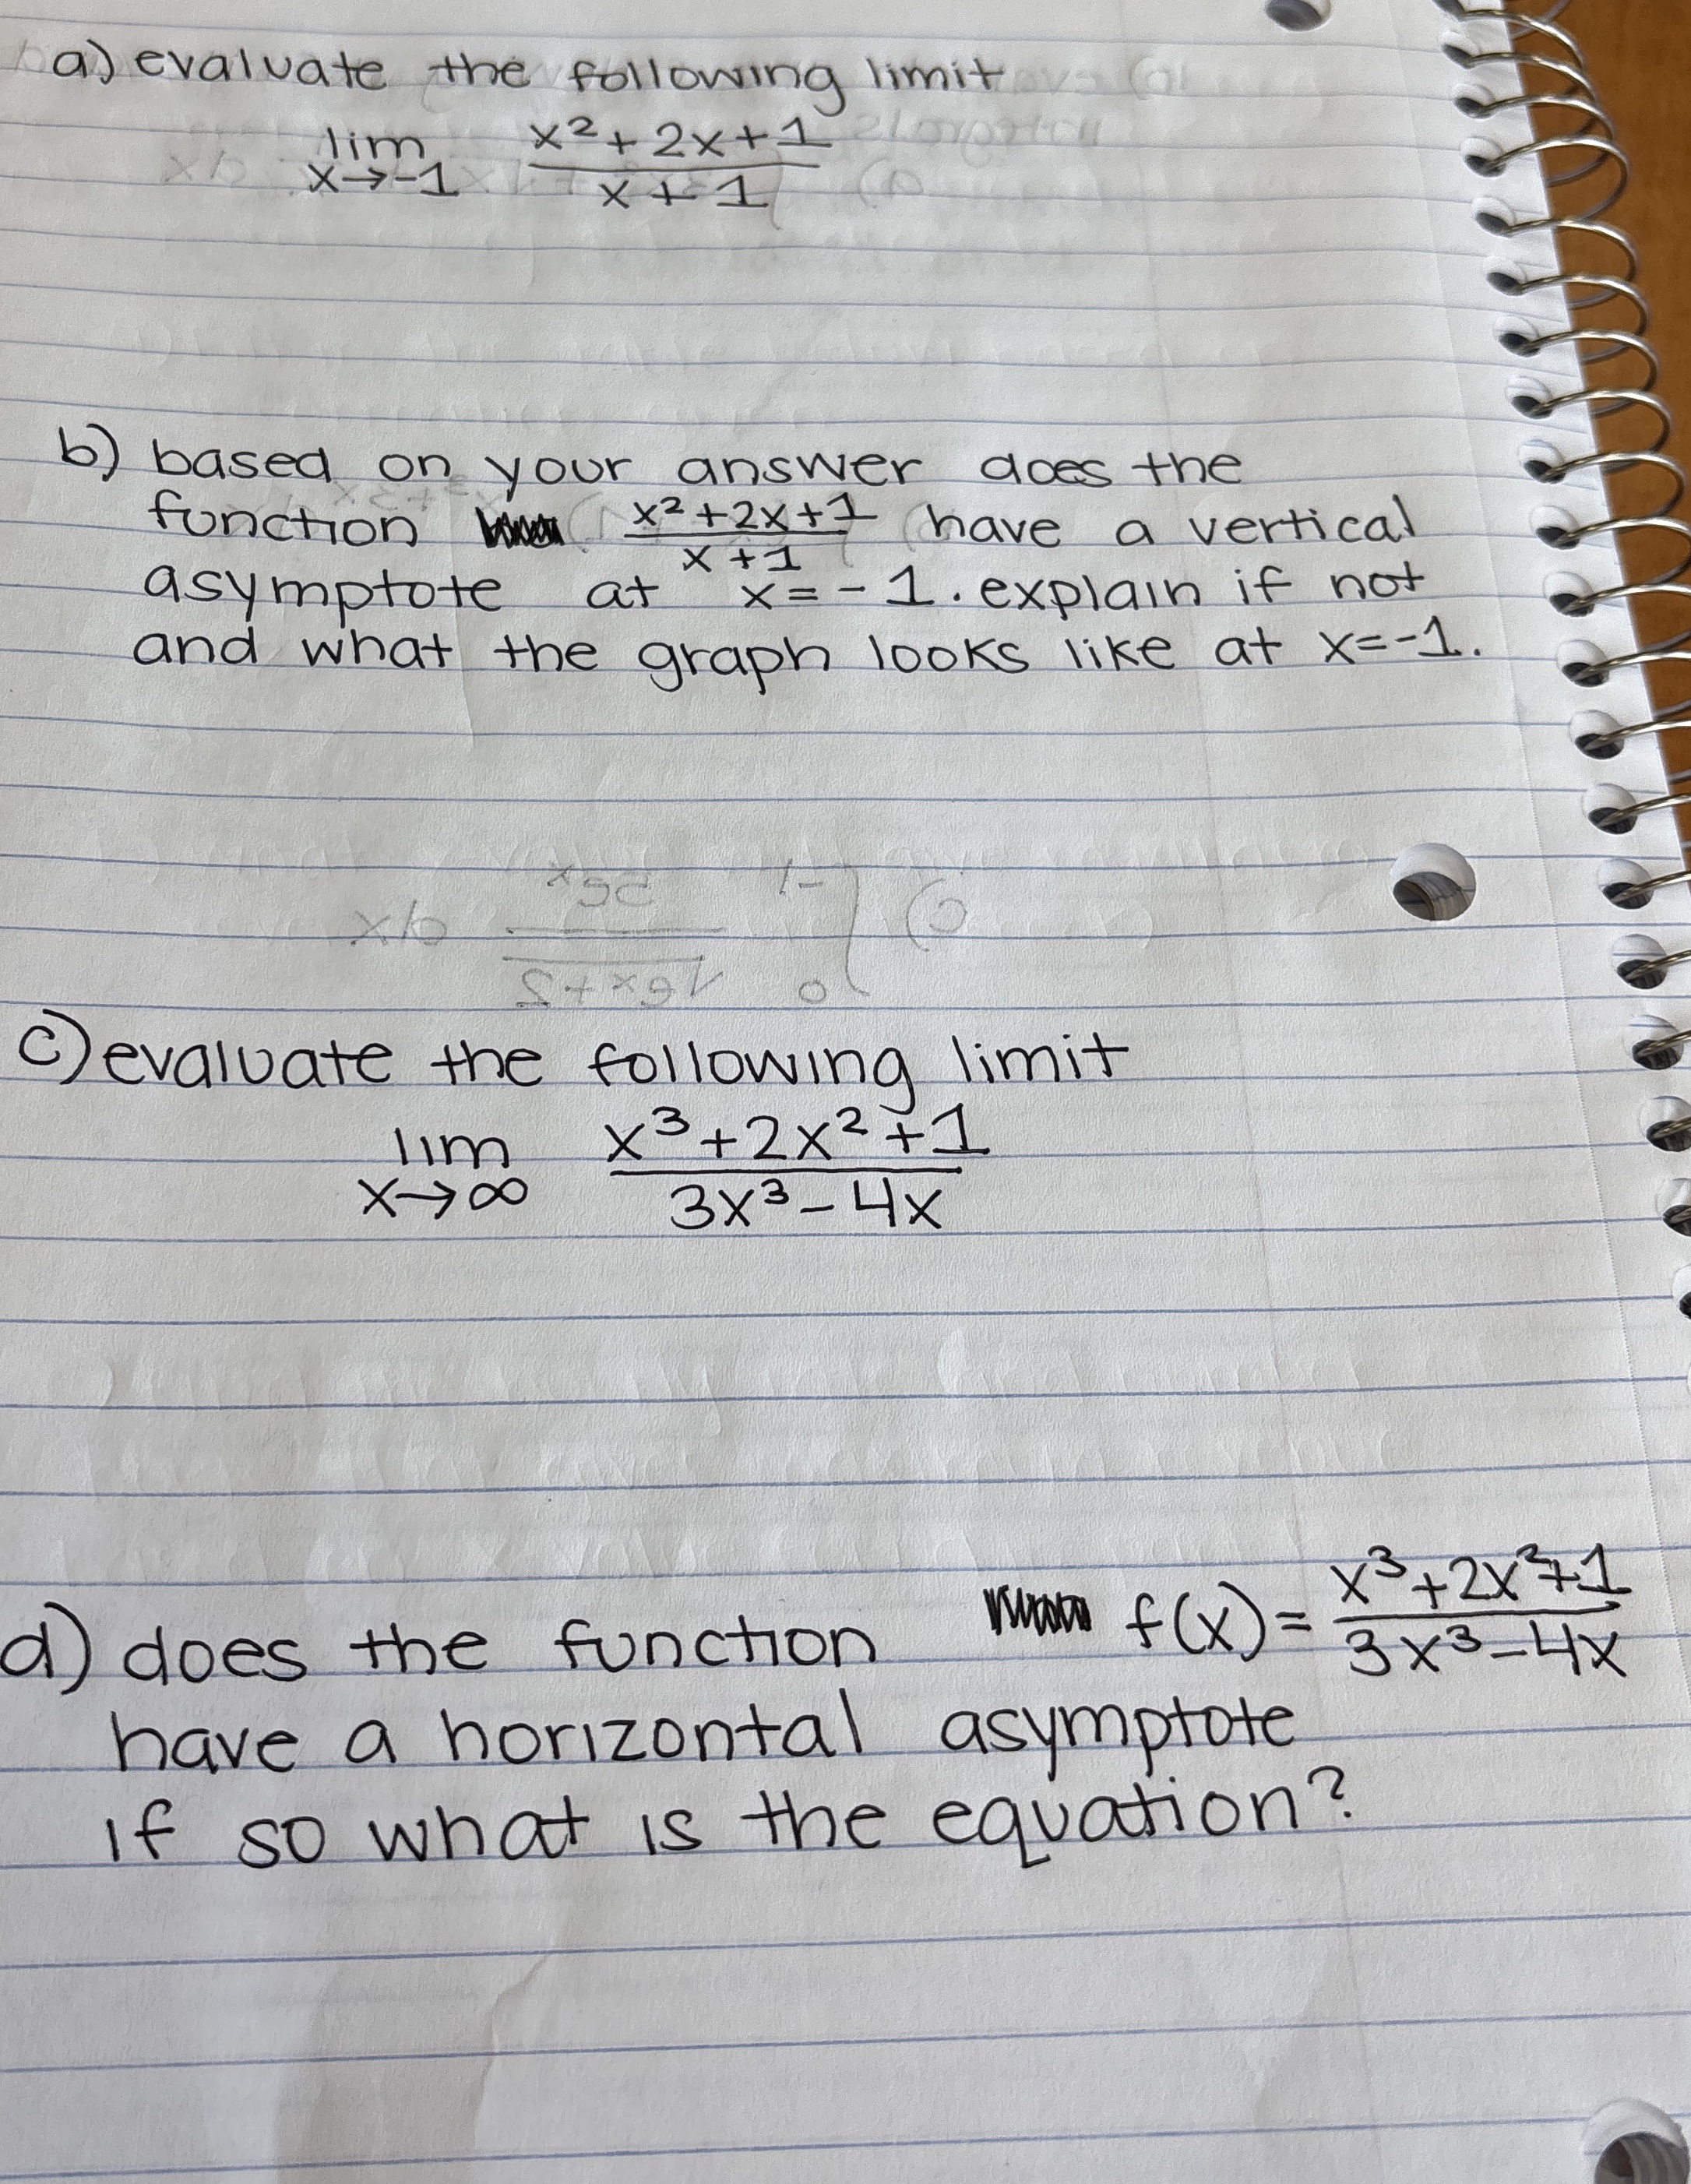 a) evaluate the following limit
lim x→-1 (x²+2x+1)/(x+1)
b) based on your answer does the
function (x²+2x+1)/(x+1) have a vertical
asymptote at x=-1. explain if not
and what the graph looks like at x=-1.
c) evaluate the following limit
lim x→∞ (x³+2x²+1)/(3x³-4x)
d) does the function f(x)= (x³+2x²+1)/(3x³-4x)
have a horizontal asymptote
if so what is the equation?